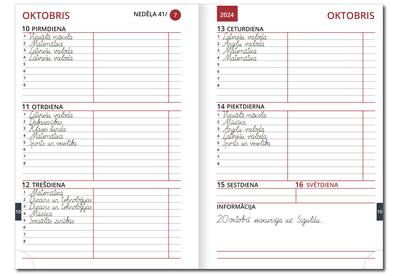 OKTOBRIS
NEDĒĻA 41/ 7
10 PIRMDIENA
1 Vizuālā māksla
2 Matemātika
3 Latviešu valoda
4 Latviešu valoda
5 Matemātika
6
7
8
11 OTRDIENA
1 Latviešu valoda
2 Dabaszinības
3 Klases stunda
4 Matemātika
5 Sports un veselība
6
7
8
12 TREŠDIENA
1 Matemātika
2 Dizains un tehnoloģijas
3 Dizains un tehnoloģijas
4 Mūzika
5 Sociālās zinības
6
7
8
10
2024
OKTOBRIS
13 CETURDIENA
1 Latviešu valoda
2 Angļu valoda
3 Matemātika
4 Matemātika
5
6
7
8
14 PIEKTDIERNA
1 Vizuālā māksla
2 Mūzika
3 Angļu valoda
4 Latviešu valoda
5 Sports un veselība
6
7
8
15 SESTDIENA
16 SVĒTDIENA
INFORMĀCIJA
20. oktobrī ekskursija uz Siguldu.
10